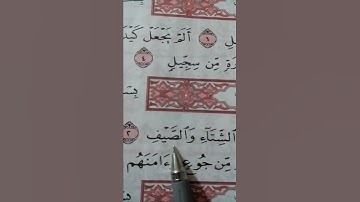 لِ ١ أَلَمْ يَجْعَلْ كَيْدَ
رَةٍ مِّن سِجِّيلٍ ٤
بِسْ
الشِّتَآءِ وَالصَّيْفِ ٢
مِّن جُوعٍ ءَامَنَهُم